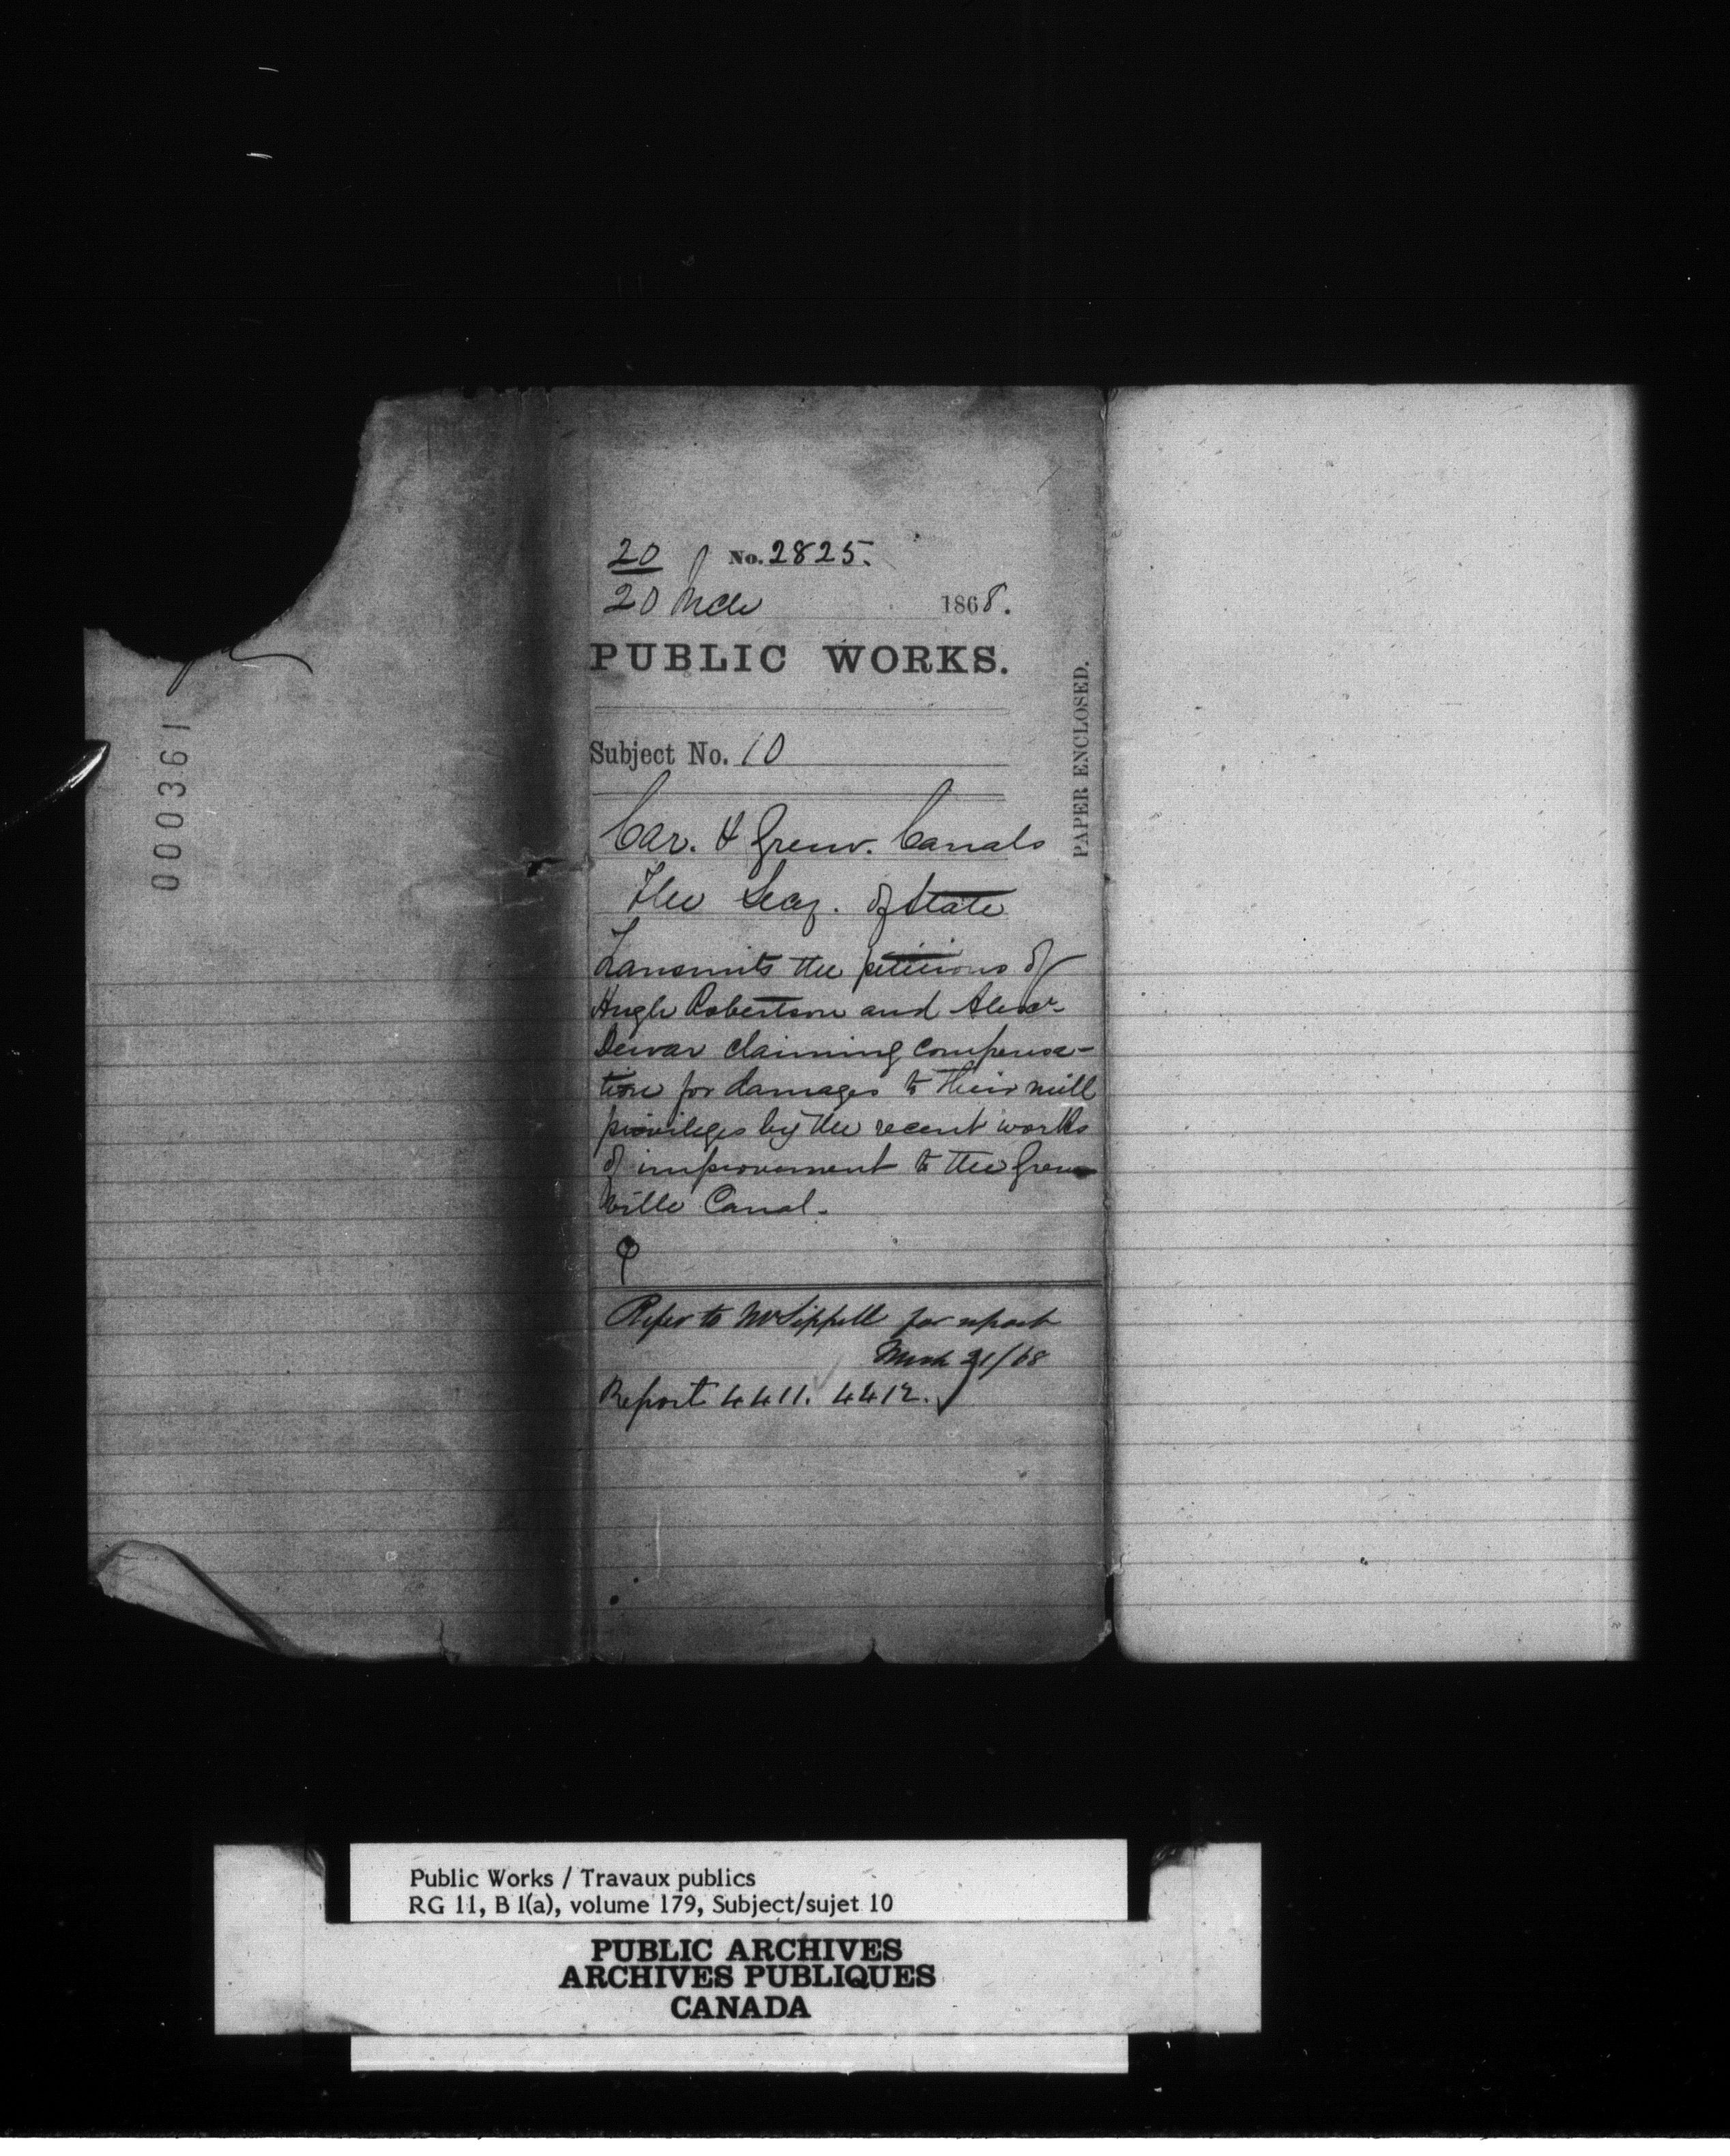 20 No. 2825.
20 Mch 1868.
PUBLIC WORKS.
PAPER ENCLOSED.
000361
Subject No. 10
Car. & Grenv. Canals
The Secy. of State
Transmits the petitions of
Hugh Robertson and Alexr.
Dewar claiming compensa-
tion for damages to their mill
privileges by the recent works
of improvement to the Gren
ville Canal.
Refer to Mr Sippell for report
Mch 21/68
Report 4411. 4412.
Public Works / Travaux publics
RG 11, B 1(a), volume 179, Subject/sujet 10
PUBLIC ARCHIVES
ARCHIVES PUBLIQUES
CANADA